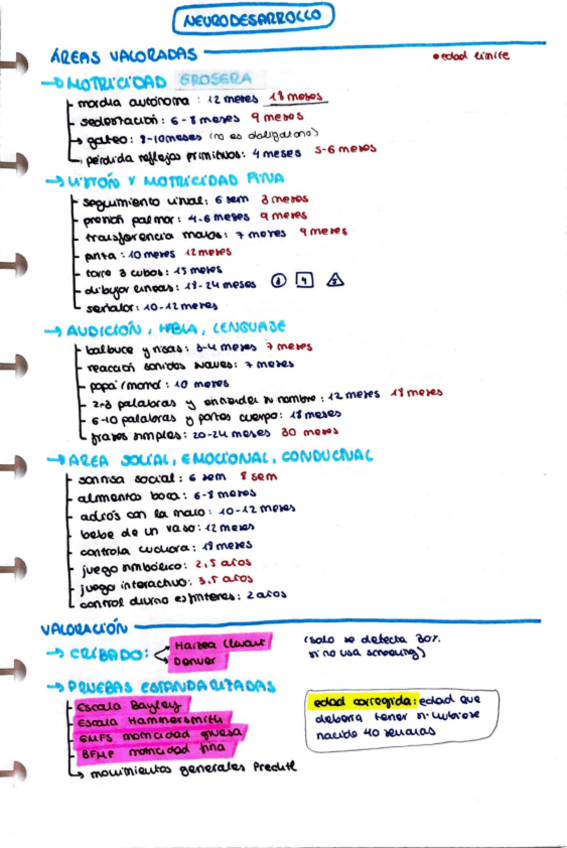 NEURODESARROLLO
ÁREAS VALORADAS
• edad límite
→ MOTRICIDAD GROSERA
- marcha autónoma: 12 meses 18 meses
- sedestación: 6-8 meses 9 meses
→ gateo: 8-10 meses (no es obligatorio)
→ pérdida reflejos primitivos: 4 meses 5-6 meses
→ VISIÓN Y MOTRICIDAD FINA
- seguimiento visual: 6 sem 3 meses
- prensión palmar: 4-6 meses 9 meses
- transferencia manos: 7 meses 9 meses
- pinza: 10 meses 12 meses
- torre 3 cubos: 15 meses
- dibujar líneas: 18-24 meses 3 4
- señalar: 10-12 meses
→ AUDICIÓN, HABLA, LENGUAJE
- balbuce y risas: 3-4 meses 7 meses
- reacción sonidos suaves: 7 meses
- papá/mamá: 10 meses
- 2-3 palabras y entender su nombre: 12 meses 18 meses
- 6-10 palabras y partes cuerpo: 18 meses
- frases simples: 20-24 meses 30 meses
→ ÁREA SOCIAL, EMOCIONAL, CONDUCTUAL
- sonrisa social: 6 sem 8 sem
- alimentos boca: 6-8 meses
- adiós con la mano: 10-12 meses
- bebe de un vaso: 12 meses
- controla cuchara: 18 meses
- juego simbólico: 2,5 años
- juego interactivo: 3,5 años
- control diurno esfínteres: 2 años
VALORACIÓN
→ CRIBADO:
Haizea Llevant
Denver
(solo se detecta 30%
si no usa screening)
→ PRUEBAS ESTANDARIZADAS
- Escala Bayley
- Escala Hammersmith
- GMFS motricidad gruesa
- BFMF motricidad fina
→ movimientos generales Prechtl
edad corregida: edad que
debería tener si hubiese
nacido 40 semanas